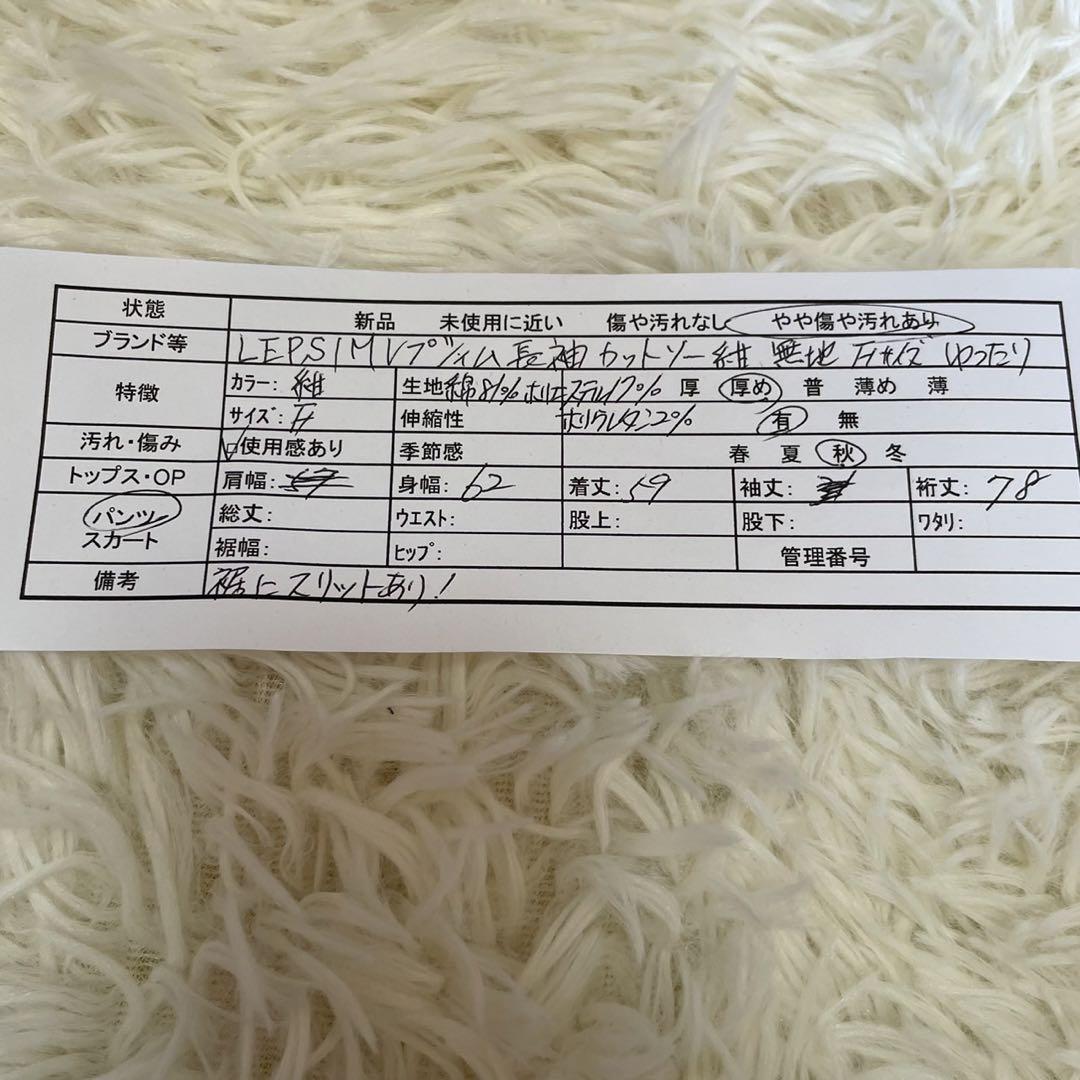 状態 新品 未使用に近い 傷や汚れなし やや傷や汚れあり
ブランド等 LEPSIM レプシィム 長袖 カットソー 紺 無地 Fサイズ ゆったり
特徴 カラー: 紺 生地 綿81% ポリエステル17% 厚 厚め 普 薄め 薄
サイズ: F 伸縮性 ポリウレタン2% 有 無
汚れ・傷み 使用感あり 季節感 春 夏 秋 冬
トップス・OP 肩幅: 身幅: 62 着丈: 59 袖丈: 裄丈: 78
パンツ 総丈: ウエスト: 股上: 股下: ワタリ:
スカート 裾幅: ヒップ: 管理番号
備考 裾にスリットあり!